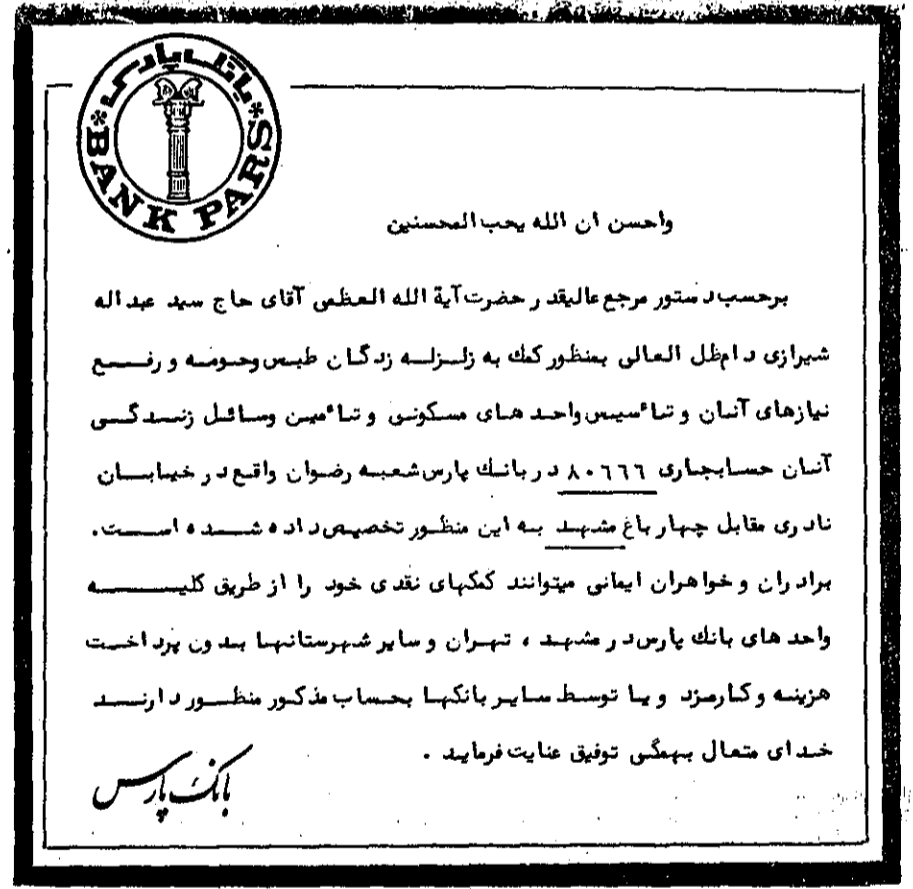 بانک پارس
BANK PARS
واحسن ان الله یحب المحسنین
برحسب دستور مرجع عالیقدر حضرت آیة الله العظمی آقای حاج سید عبداله
شیرازی دامظل العالی بمنظور کمك به زلزله زدگان طبس وحومه و رفع
نیازهای آنان و تأسیس واحد های مسکونی و تأمین وسائل زندگی
آنان حسابجاری ۸۰۶۶۶ در بانك پارس شعبه رضوان واقع در خیابان
نادری مقابل چهار باغ مشهد به این منظور تخصیص داده شده است.
برادران و خواهران ایمانی میتوانند کمکهای نقدی خود را از طریق کلیه
واحد های بانك پارس در مشهد ، تهران و سایر شهرستانها بدون پرداخت
هزینه و کارمزد و یا توسط سایر بانکها بحساب مذکور منظور دارند
خدای متعال بهمگی توفیق عنایت فرماید .
بانک پارس